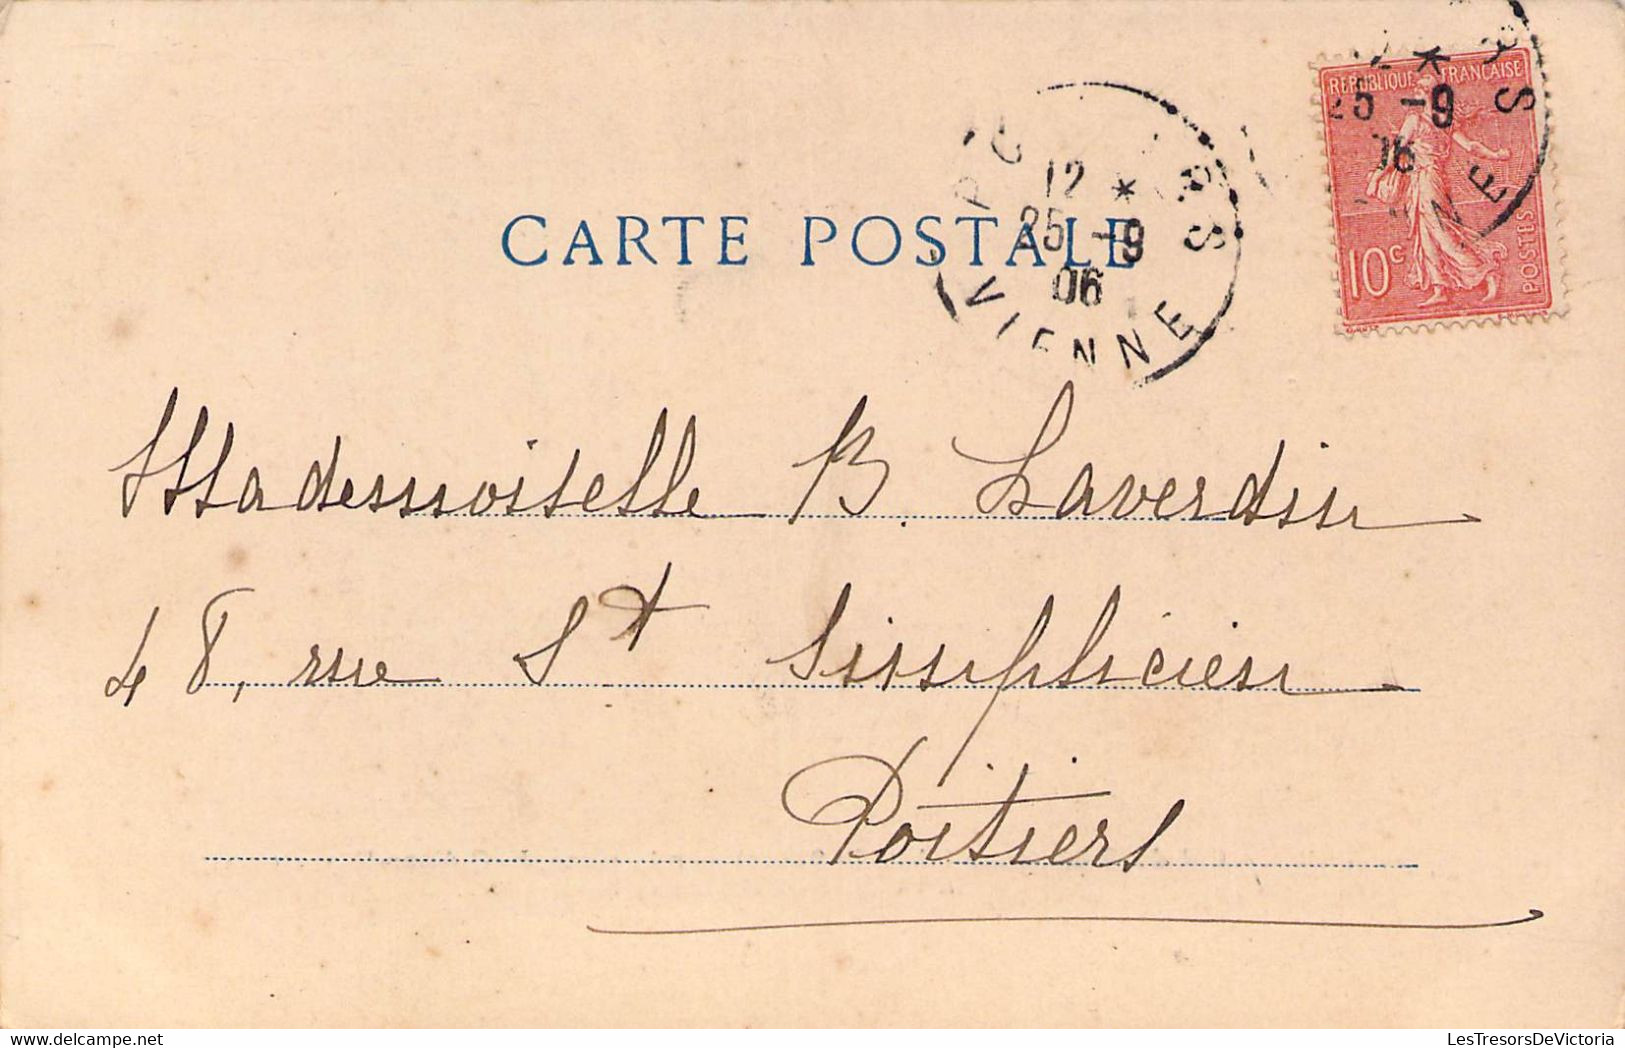 CARTE POSTALE
12 *
25 -9
06
VIENNE
REPUBLIQUE FRANÇAISE
25 -9
06
10c
POSTES
Mademoiselle B. Laverdin
48, rue St Simplicien
Poitiers
LesTresorsDeVictoria